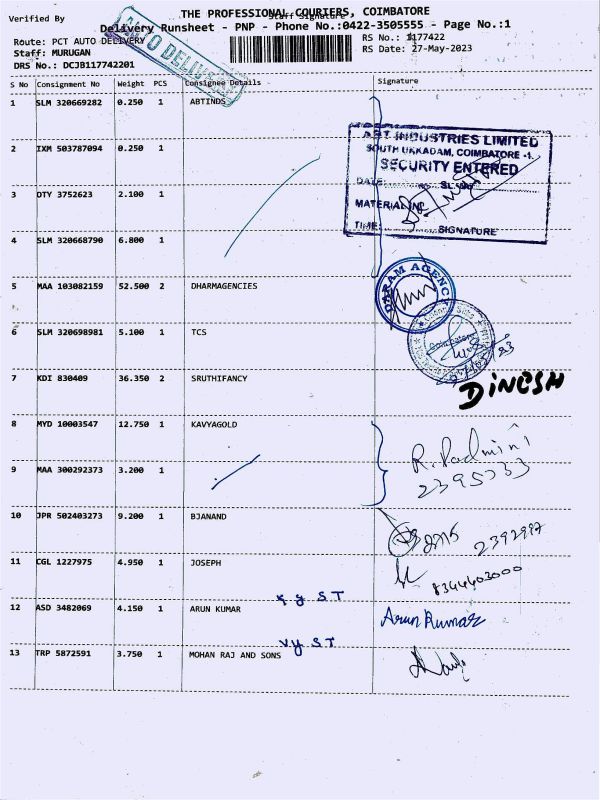 THE PROFESSIONAL COURIERS, COIMBATORE
Verified By Staff Signature
Delivery Runsheet - PNP - Phone No.:0422-3505555 - Page No.:1
AUTO DELIVERY
Route: PCT AUTO DELIVERY
RS No.: 1177422
Staff: MURUGAN
RS Date: 27-May-2023
DRS No.: DCJB117742201
S No Consignment No Weight PCS Consignee Details Signature
1 SLM 320669282 0.250 1 ABTINDS
2 IXM 503787094 0.250 1
3 OTY 3752623 2.100 1
4 SLM 320668790 6.800 1
ABT INDUSTRIES LIMITED
SOUTH UKKADAM, COIMBATORE -1.
SECURITY ENTERED
DATE: SL.
MATERIAL
TIME: SIGNATURE
5 MAA 103082159 52.500 2 DHARMAGENCIES
AGENCY
6 SLM 320698981 5.100 1 TCS
Coimbatore
23
7 KDI 830409 36.350 2 SRUTHIFANCY
DINESH
8 MYD 10003547 12.750 1 KAVYAGOLD
R. Padmini
9 MAA 300292373 3.200 1
10 JPR 502403273 9.200 1 BJANAND
11 CGL 1227975 4.950 1 JOSEPH
8344603000
12 ASD 3482069 4.150 1 ARUN KUMAR
ST
Arun Kumar
13 TRP 5872591 3.750 1 MOHAN RAJ AND SONS
ST